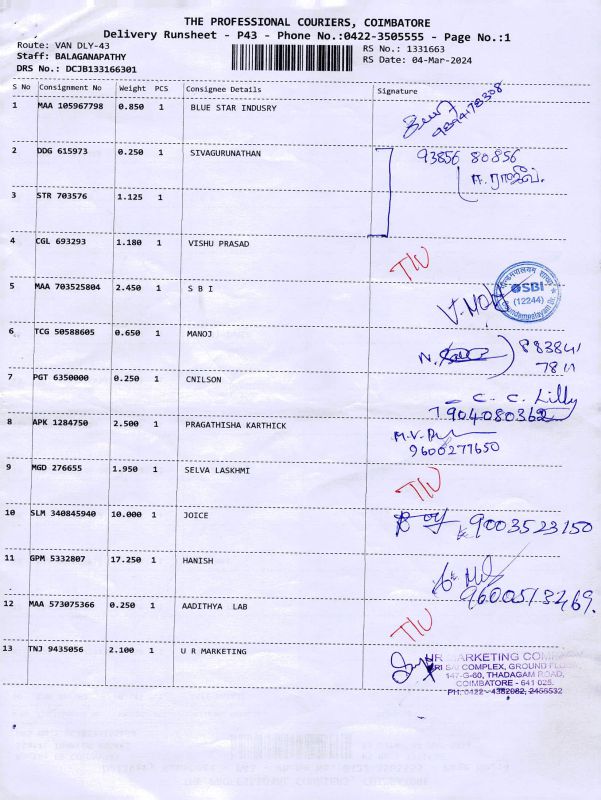 THE PROFESSIONAL COURIERS, COIMBATORE
Delivery Runsheet - P43 - Phone No.:0422-3505555 - Page No.:1
Route: VAN DLY-43 RS No.: 1331663
Staff: BALAGANAPATHY RS Date: 04-Mar-2024
DRS No.: DCJB133166301
S No Consignment No Weight PCS Consignee Details Signature
1 MAA 105967798 0.850 1 BLUE STAR INDUSRY 9894178308
2 DDG 615973 0.250 1 SIVAGURUNATHAN 93856 80856
ராஜீவ்.
3 STR 703576 1.125 1
4 CGL 693293 1.180 1 VISHU PRASAD
5 MAA 703525804 2.450 1 S B I
SBI
(12244)
6 TCG 50588605 0.650 1 MANOJ 883841
7811
7 PGT 6350000 0.250 1 CNILSON C. C. Lilly
7904080362
8 APK 1284750 2.500 1 PRAGATHISHA KARTHICK M.V.
9600277650
9 MGD 276655 1.950 1 SELVA LASKHMI
10 SLM 340845940 10.000 1 JOICE 9003523150
11 GPM 5332807 17.250 1 HANISH
9600513269.
12 MAA 573075366 0.250 1 AADITHYA LAB
13 TNJ 9435056 2.100 1 U R MARKETING
UR MARKETING
SRI SAI COMPLEX, GROUND FLOOR,
147-G-60, THADAGAM ROAD,
COIMBATORE - 641 025.
PH: 0422 - 4382082, 2455532